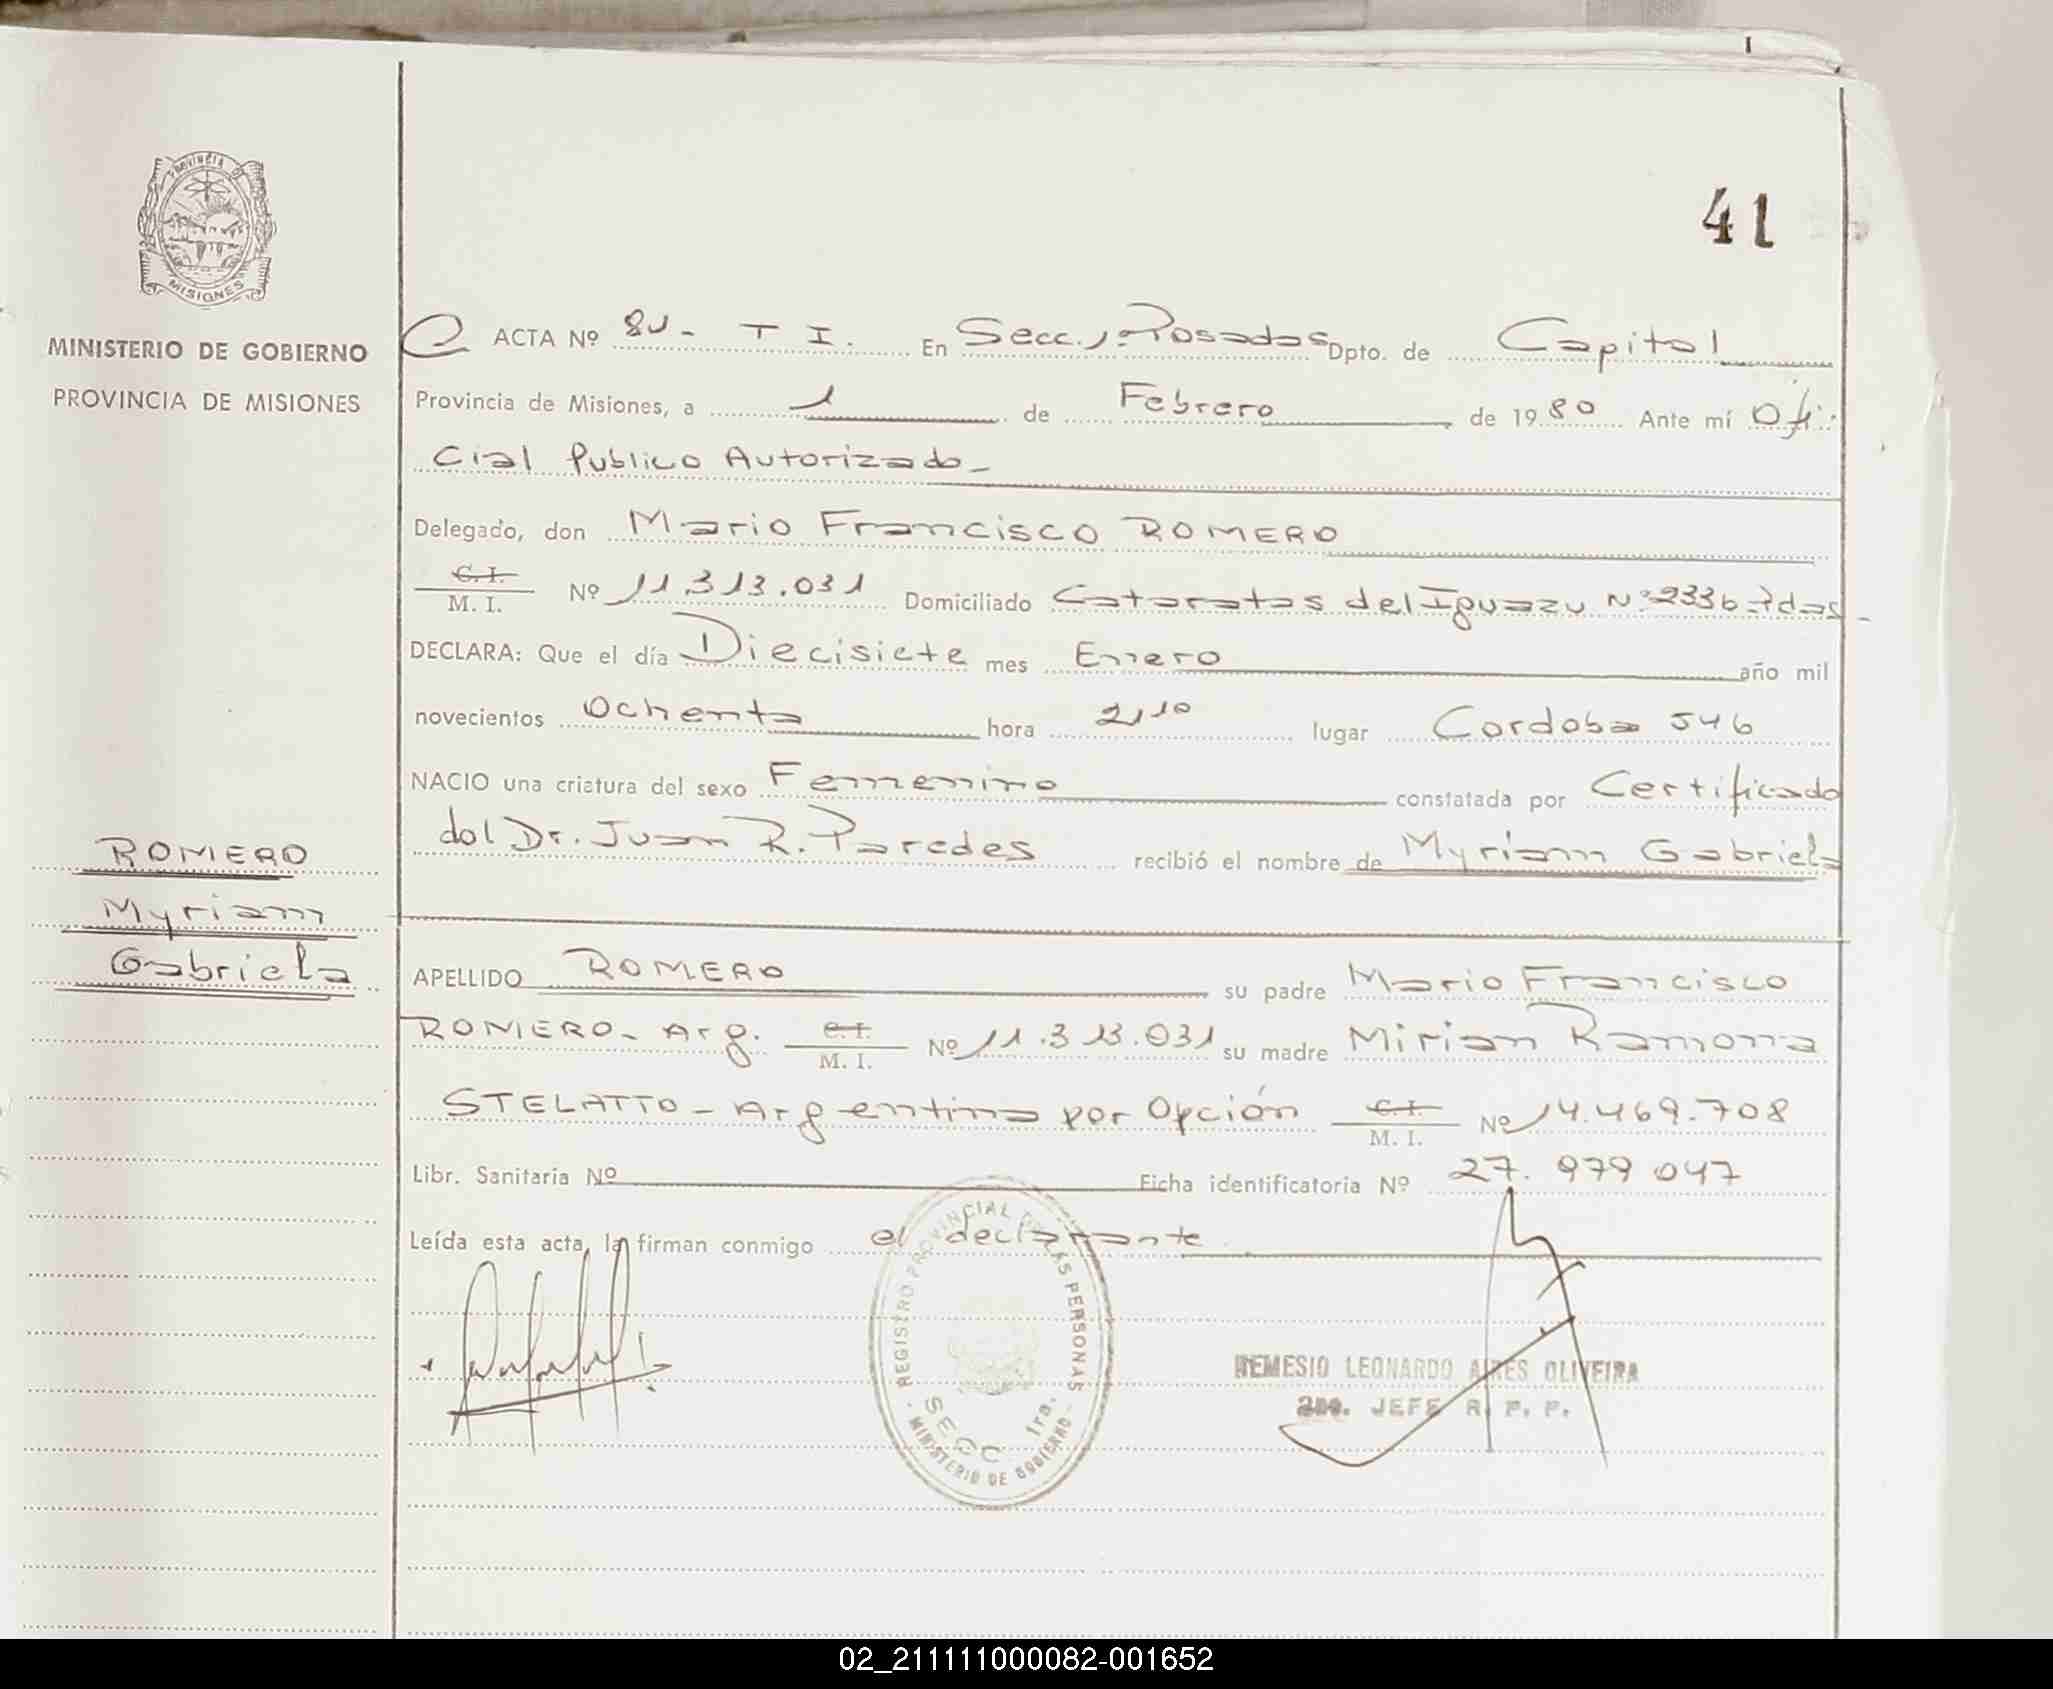 41
PROVINCIA DE MISIONES
MINISTERIO DE GOBIERNO
PROVINCIA DE MISIONES
ACTA Nº 81- T I. En Secc. 1ª Posadas Dpto. de Capital
Provincia de Misiones, a 1 de Febrero de 1980 Ante mí Ofi-
cial Publico Autorizado-
Delegado, don Mario Francisco ROMERO
C. I.
M. I. Nº 11.313.031 Domiciliado Cataratas del Iguazu Nº 2336 Pdas-
DECLARA: Que el día Diecisiete mes Enero año mil
novecientos Ochenta hora 21,10 lugar Cordoba 546
NACIO una criatura del sexo Femenino constatada por Certificado
del Dr. Juan R. Paredes recibió el nombre de Myriam Gabriela
ROMERO
Myriam
Gabriela
APELLIDO ROMERO su padre Mario Francisco
ROMERO- Arg. C. I. M. I. Nº 11.313.031 su madre Mirian Ramona
STELATTO- Argentina por Opción C. I. M. I. Nº 14.469.708
Libr. Sanitaria Nº Ficha identificatoria Nº 27.979 047
Leída esta acta, la firman conmigo el declarante
REGISTRO PROVINCIAL DE LAS PERSONAS
SECC 1ra.
MINISTERIO DE GOBIERNO
NEMESIO LEONARDO AIRES OLIVEIRA
2do. JEFE R. P. P.
02_211111000082-001652